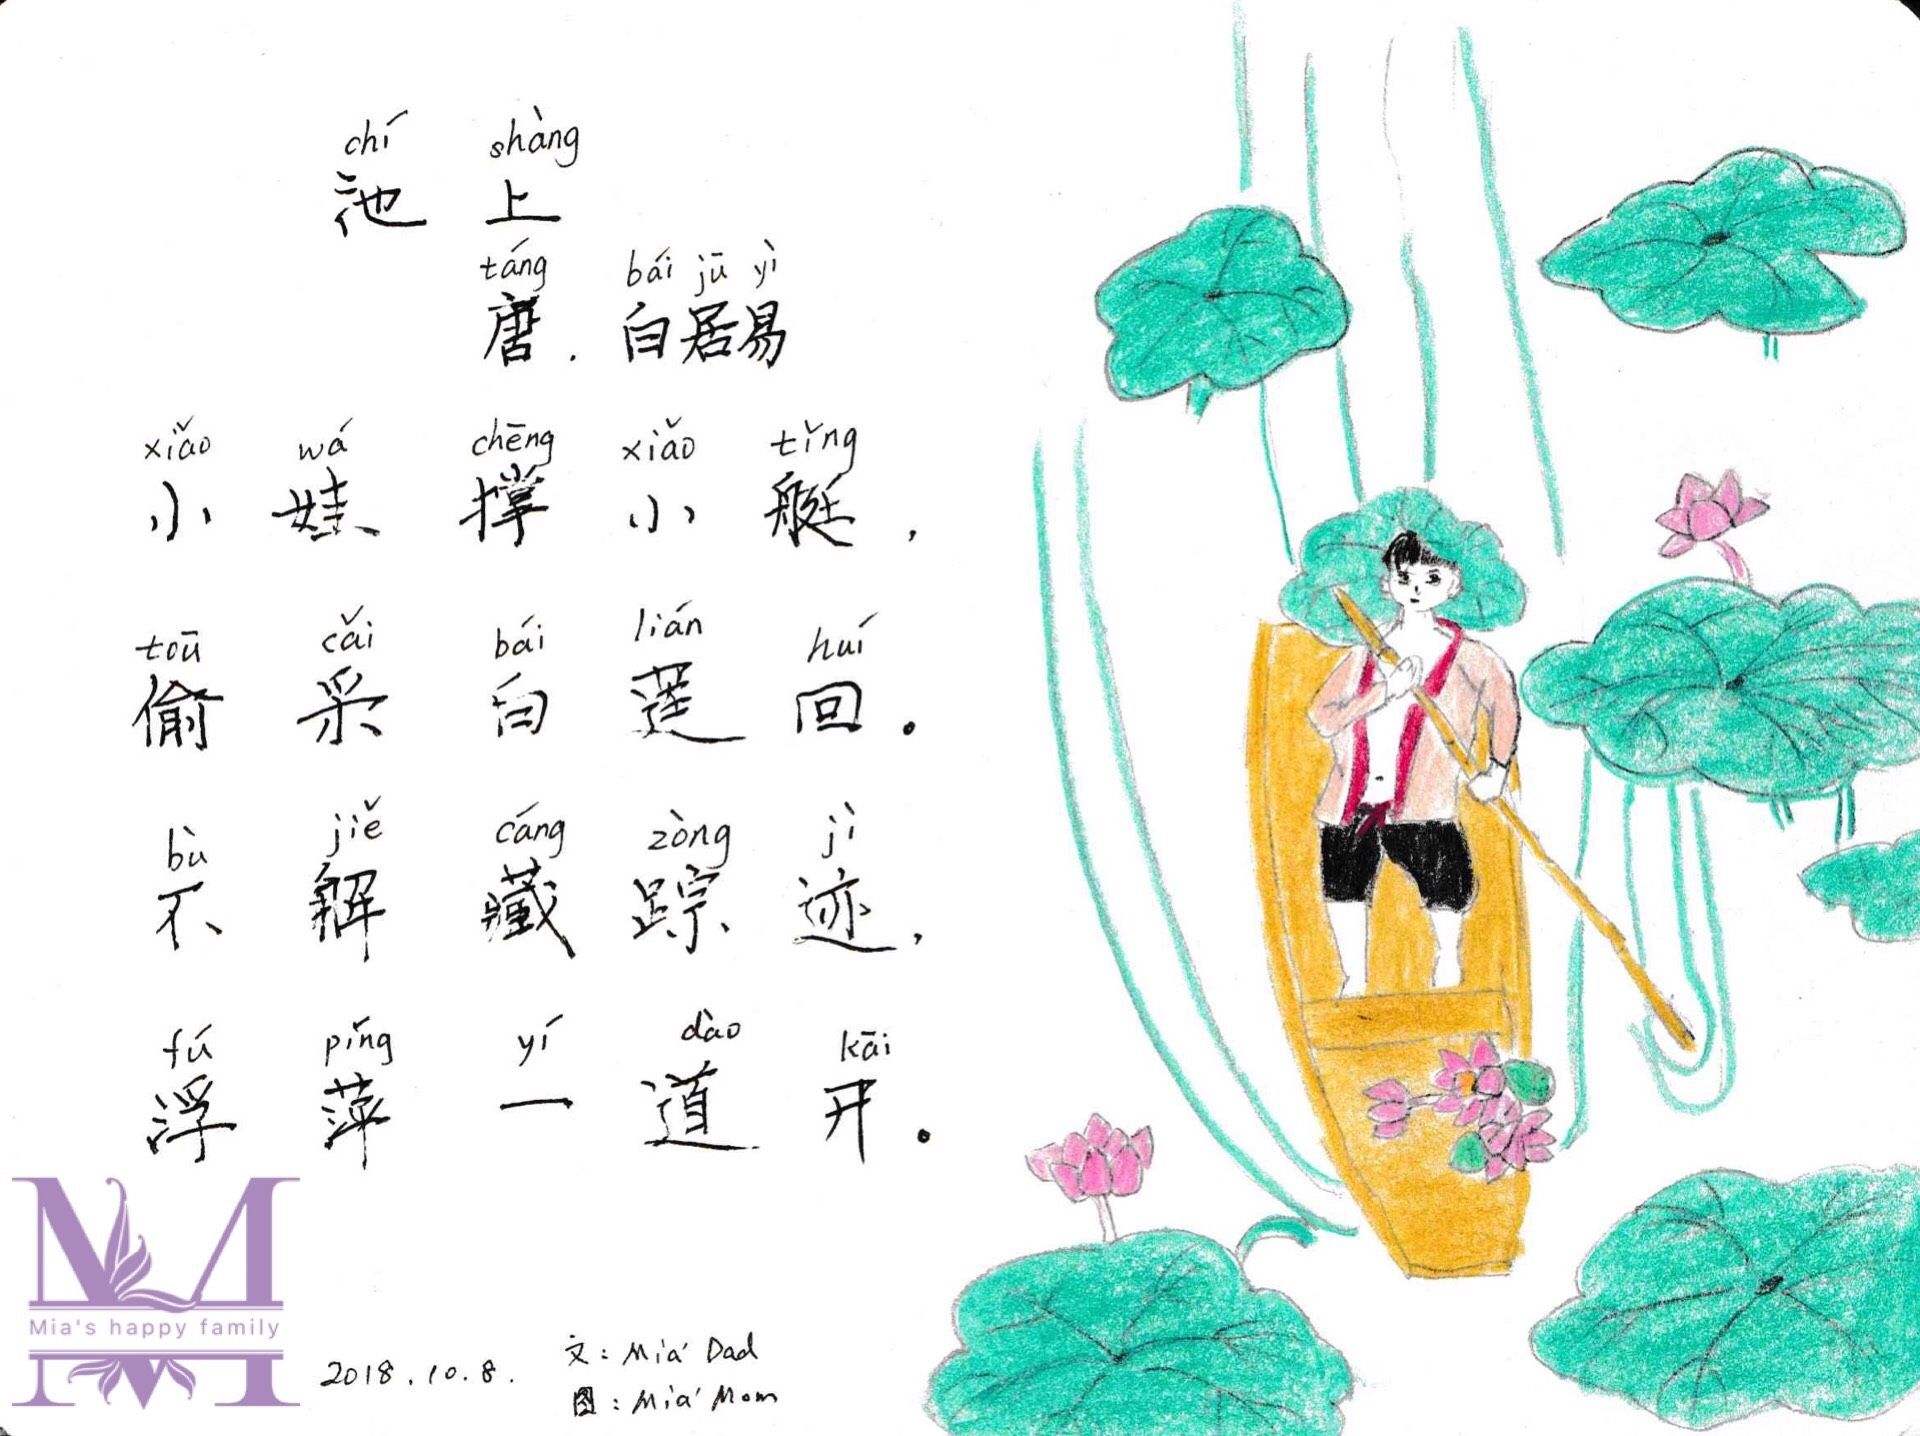 chí shàng
池 上
táng bái jū yì
唐．白居易
xiǎo wá chēng xiǎo tǐng
小 娃 撑 小 艇，
toū cǎi bái lián huí
偷 采 白 莲 回。
bù jiě cáng zòng jì
不 解 藏 踪 迹，
fú píng yí dào kāi
浮 萍 一 道 开。
M
Mia's happy family
2018.10.8.
文：Mia' Dad
图：Mia' Mom